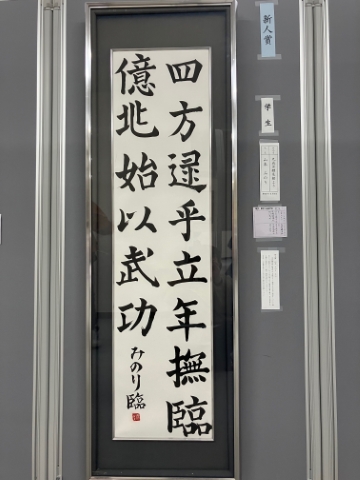 四方逮乎立年撫臨
億兆始以武功
みのり臨
新人賞
学生